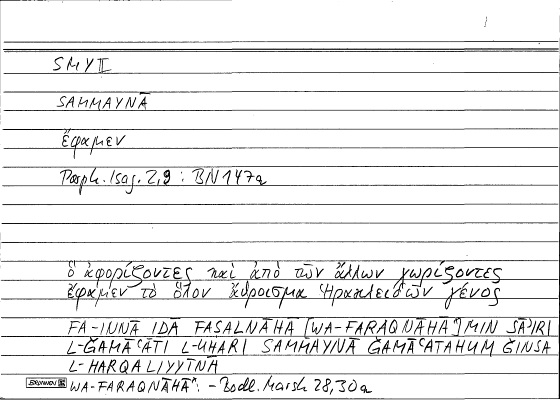 1
SMY II
SAMMAYNĀ
ἔφαμεν
Porph. Isag. 2,9 : BN 147a
ὃ ἀφορίζοντες καὶ ἀπὸ τῶν ἄλλων χωρίζοντες
ἔφαμεν τὸ ὅλον ἄθροισμα Ἡρακλειδῶν γένος
FA-INNĀ IḎĀ FAṢALNĀHĀ [WA-FARAQNĀHĀ] MIN SĀʾIRI
L-ǦAMĀʿĀTI L-UḪARI SAMMAYNĀ ǦAMĀʿATAHUM ǦINSA
L-HARQALIYYĪNA
WA-FARAQNĀHĀ": - Bodl. Marsh 28,30a